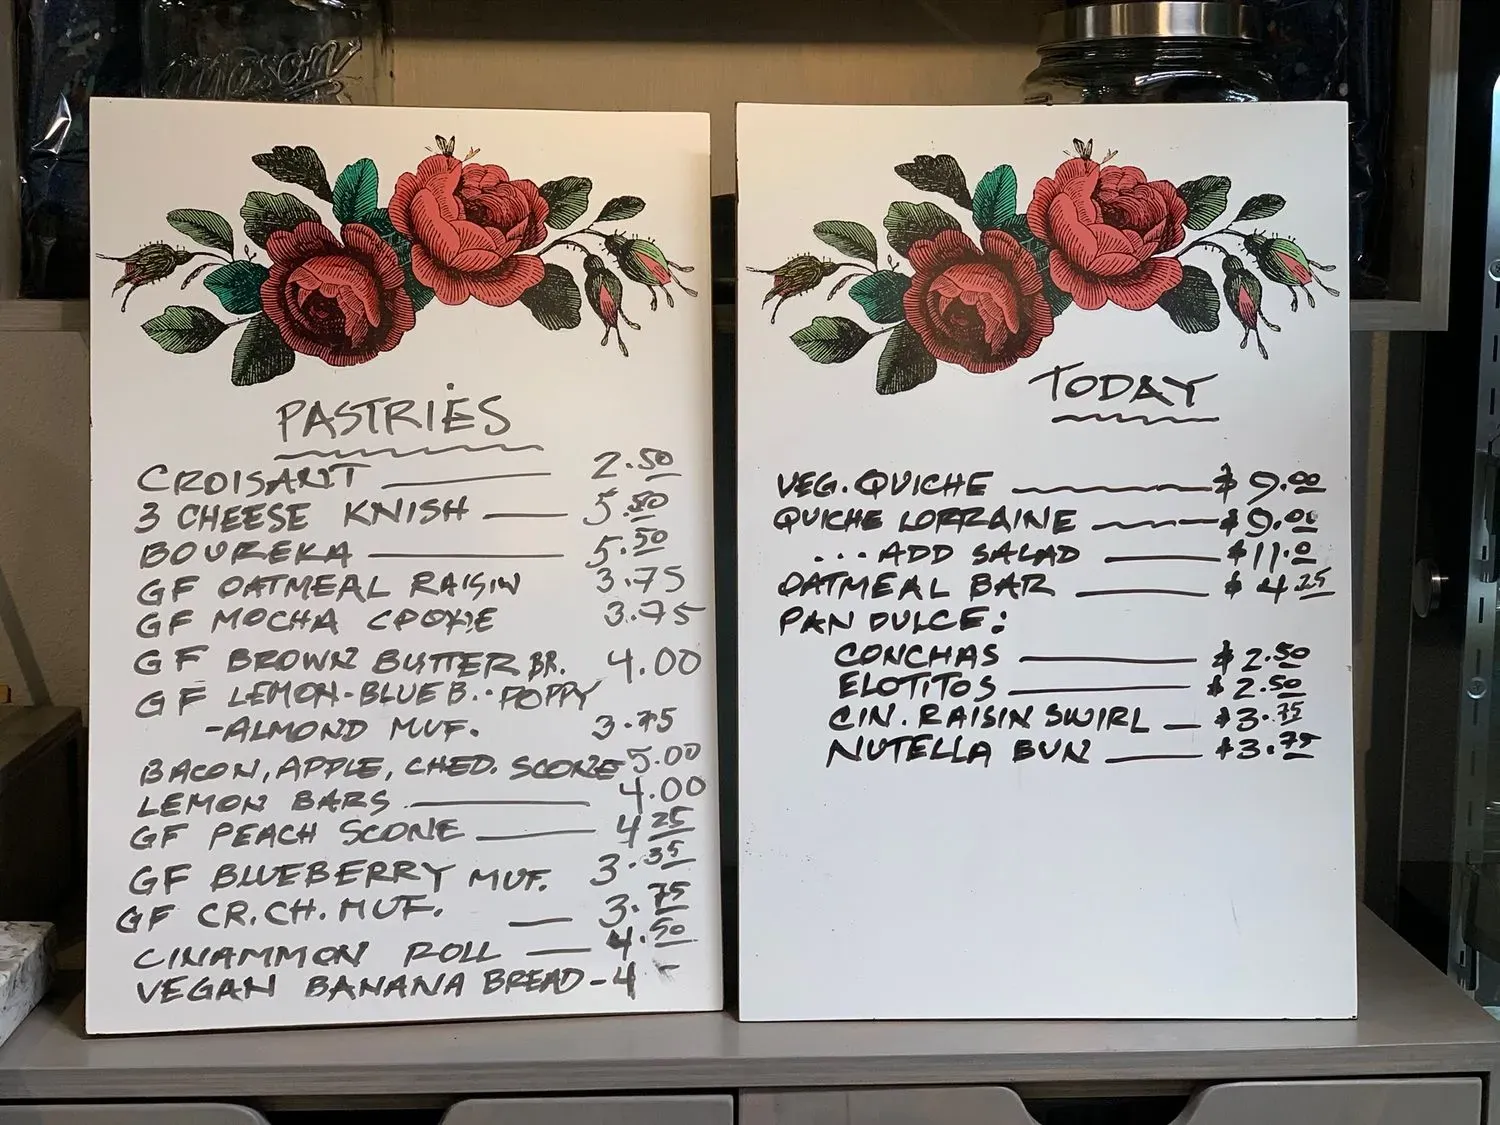 mason
PASTRIES
CROISANT 2.50
3 CHEESE KNISH 5.50
BOUREKA 5.50
GF OATMEAL RAISIN 3.75
GF MOCHA COOKIE 3.75
GF BROWN BUTTER BR. 4.00
GF LEMON-BLUEB.. POPPY
-ALMOND MUF. 3.75
BACON, APPLE, CHED. SCONE 5.00
LEMON BARS 4.00
GF PEACH SCONE 4 25
GF BLUEBERRY MUF. 3.35
GF CR.CH. MUF. 3.75
CINAMMON ROLL 4.50
VEGAN BANANA BREAD - 4 -
TODAY
VEG. QUICHE $ 9.00
QUICHE LORRAINE $9.00
... ADD SALAD $11.0
OATMEAL BAR $ 4.25
PAN DULCE:
CONCHAS $ 2.50
ELOTITOS $ 2.50
CIN. RAISIN SWIRL $3.75
NUTELLA BUN $3.75